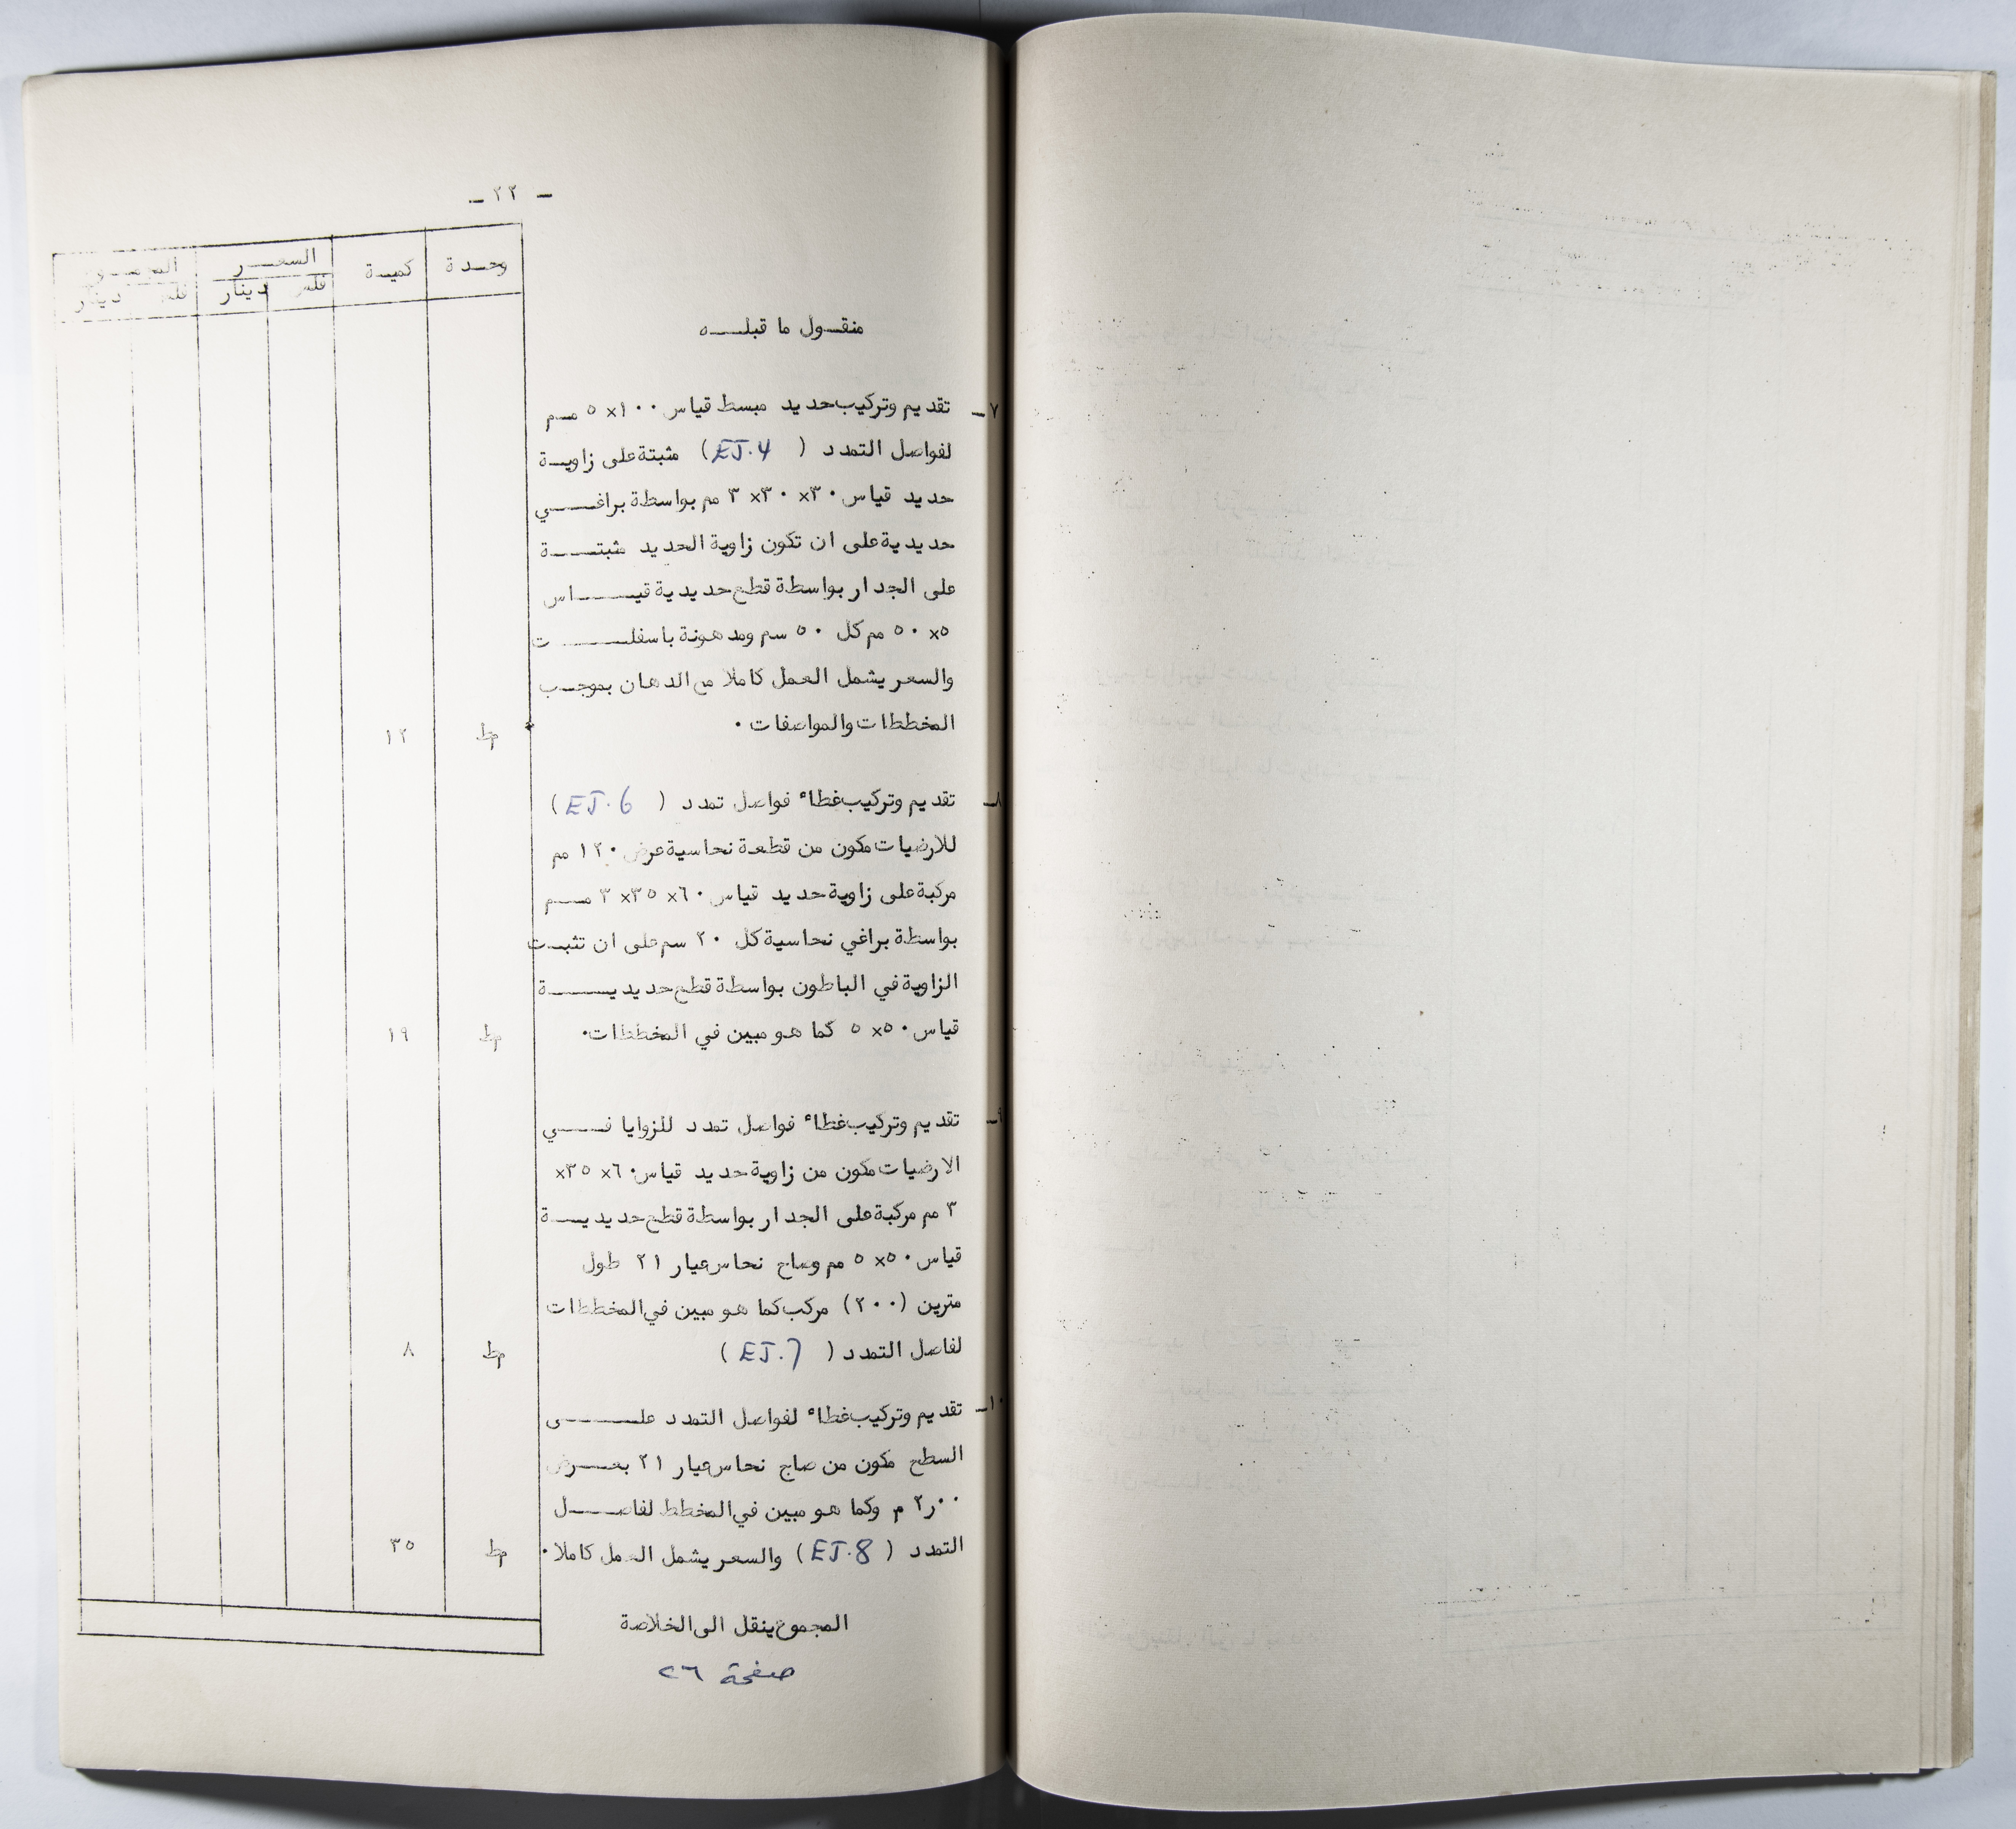 ـ ٢٢ ـ
وحـدة كميـة السعـــر المجمـــوع
فلس دينار فلس دينار
منقـــول ما قبلـــه
٧ـ تقديم وتركيب حديد مبسط قياس ١٠٠×٥ مــم
لفواصل التمدد (EJ.4) مثبتة على زاويــة
حديد قياس ٣٠×٣٠×٣ مم بواسطة براغـــي
حديدية على ان تكون زاوية الحديد مثبتـــة
على الجدار بواسطة قطع حديدية قيـــاس
٥×٥٠ مم كل ٥٠ سم ومدهونة باسفلـــت
والسعر يشمل العمل كاملا مع الدهان بموجــب
المخططات والمواصفات . مط ١٢
٨ـ تقديم وتركيب غطاء فواصل تمدد (EJ.6)
للارضيات مكون من قطعة نحاسية عرض ١٢٠ مم
مركبة على زاوية حديد قياس ٦٠×٣٥×٣ مـــم
بواسطة براغي نحاسية كل ٢٠ سم على ان تثبــت
الزاوية في الباطون بواسطة قطع حديديـــة
قياس ٥٠×٥ كما هو مبين في المخططات. مط ١٩
٩ـ تقديم وتركيب غطاء فواصل تمدد للزوايا فـــي
الارضيات مكون من زاوية حديد قياس ٦٠×٣٥×
٣ مم مركبة على الجدار بواسطة قطع حديديـــة
قياس ٥٠×٥ مم وصاج نحاس عيار ٢١ طول
مترين (٢٠٠) مركب كما هو مبين في المخططات
لفاصل التمدد (EJ.7) مط ٨
١٠ـ تقديم وتركيب غطاء لفواصل التمدد علـــى
السطح مكون من صاج نحاس عيار ٢١ بعـــرض
٢٫٠٠ م وكما هو مبين في المخطط لفاصـــل
التمدد (EJ.8) والسعر يشمل العمل كاملا . مط ٣٥
المجموع ينقل الى الخلاصة
صفحة ٢٦